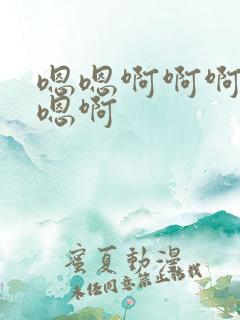 嗯嗯啊啊啊
嗯啊
蜜夏動漫
未经同意禁止转载